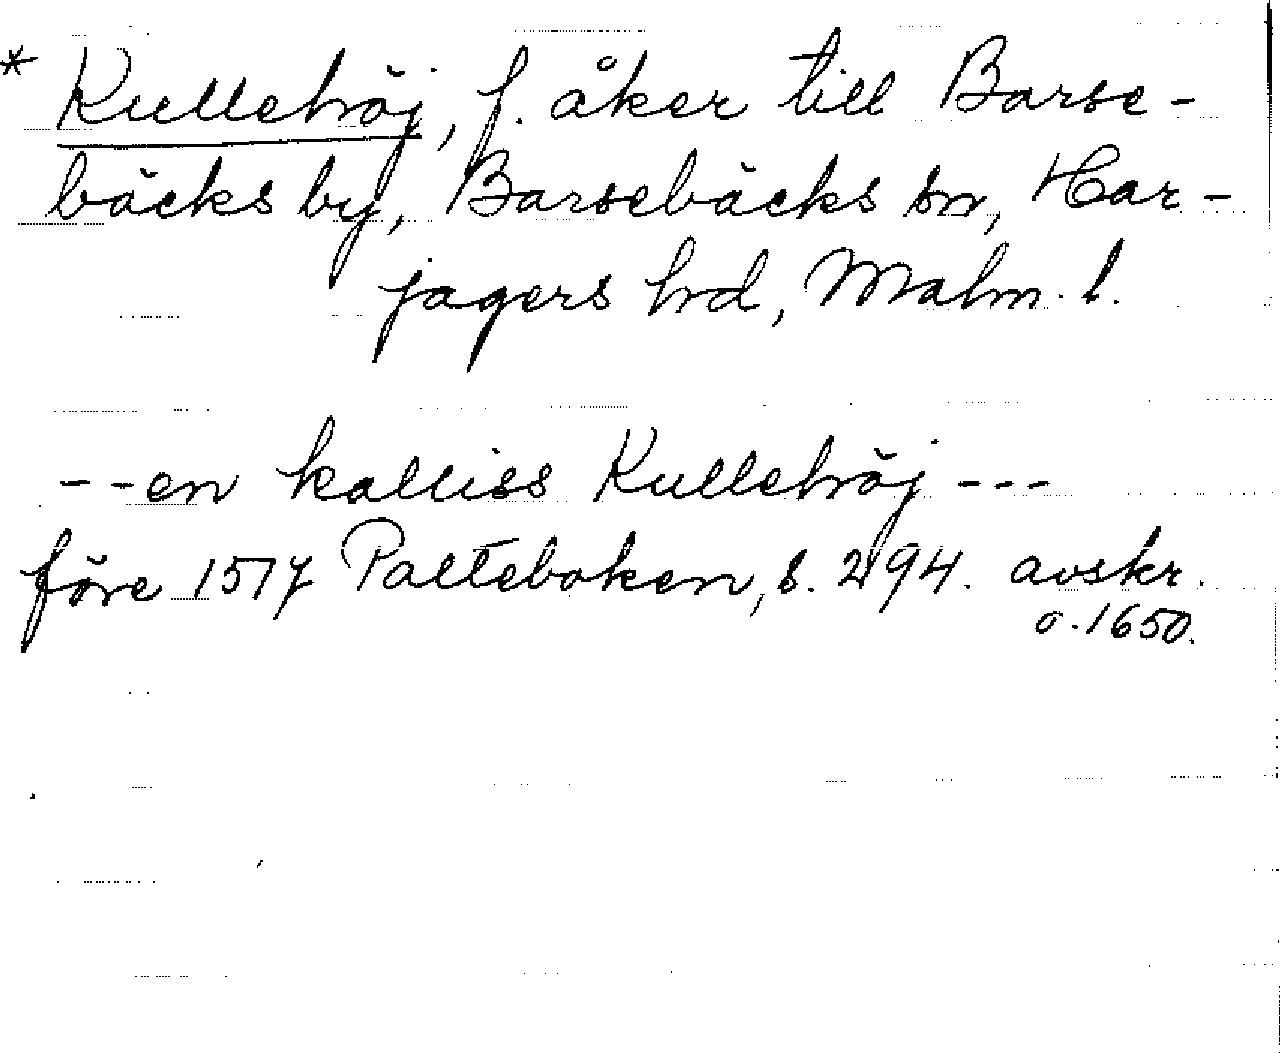 * Kullehöj, f. åker till Barse-
bäcks by, Barsebäcks sn, Har-
jagers hd, Malm. l.
--en kalliss Kullehöj ---
före 1517 Palteboken, s. 294. avskr.
o. 1650.